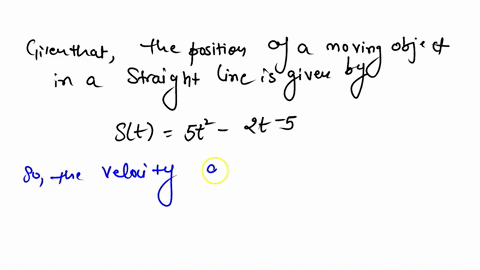 Given that, the position of a moving object
in a straight line is given by
S(t) = 5t² - 2t - 5
So, the velocity a